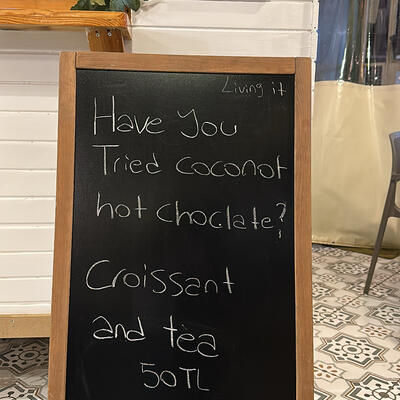 Living it
Have You
Tried coconot
hot choclate?
Croissant
and tea
50TL